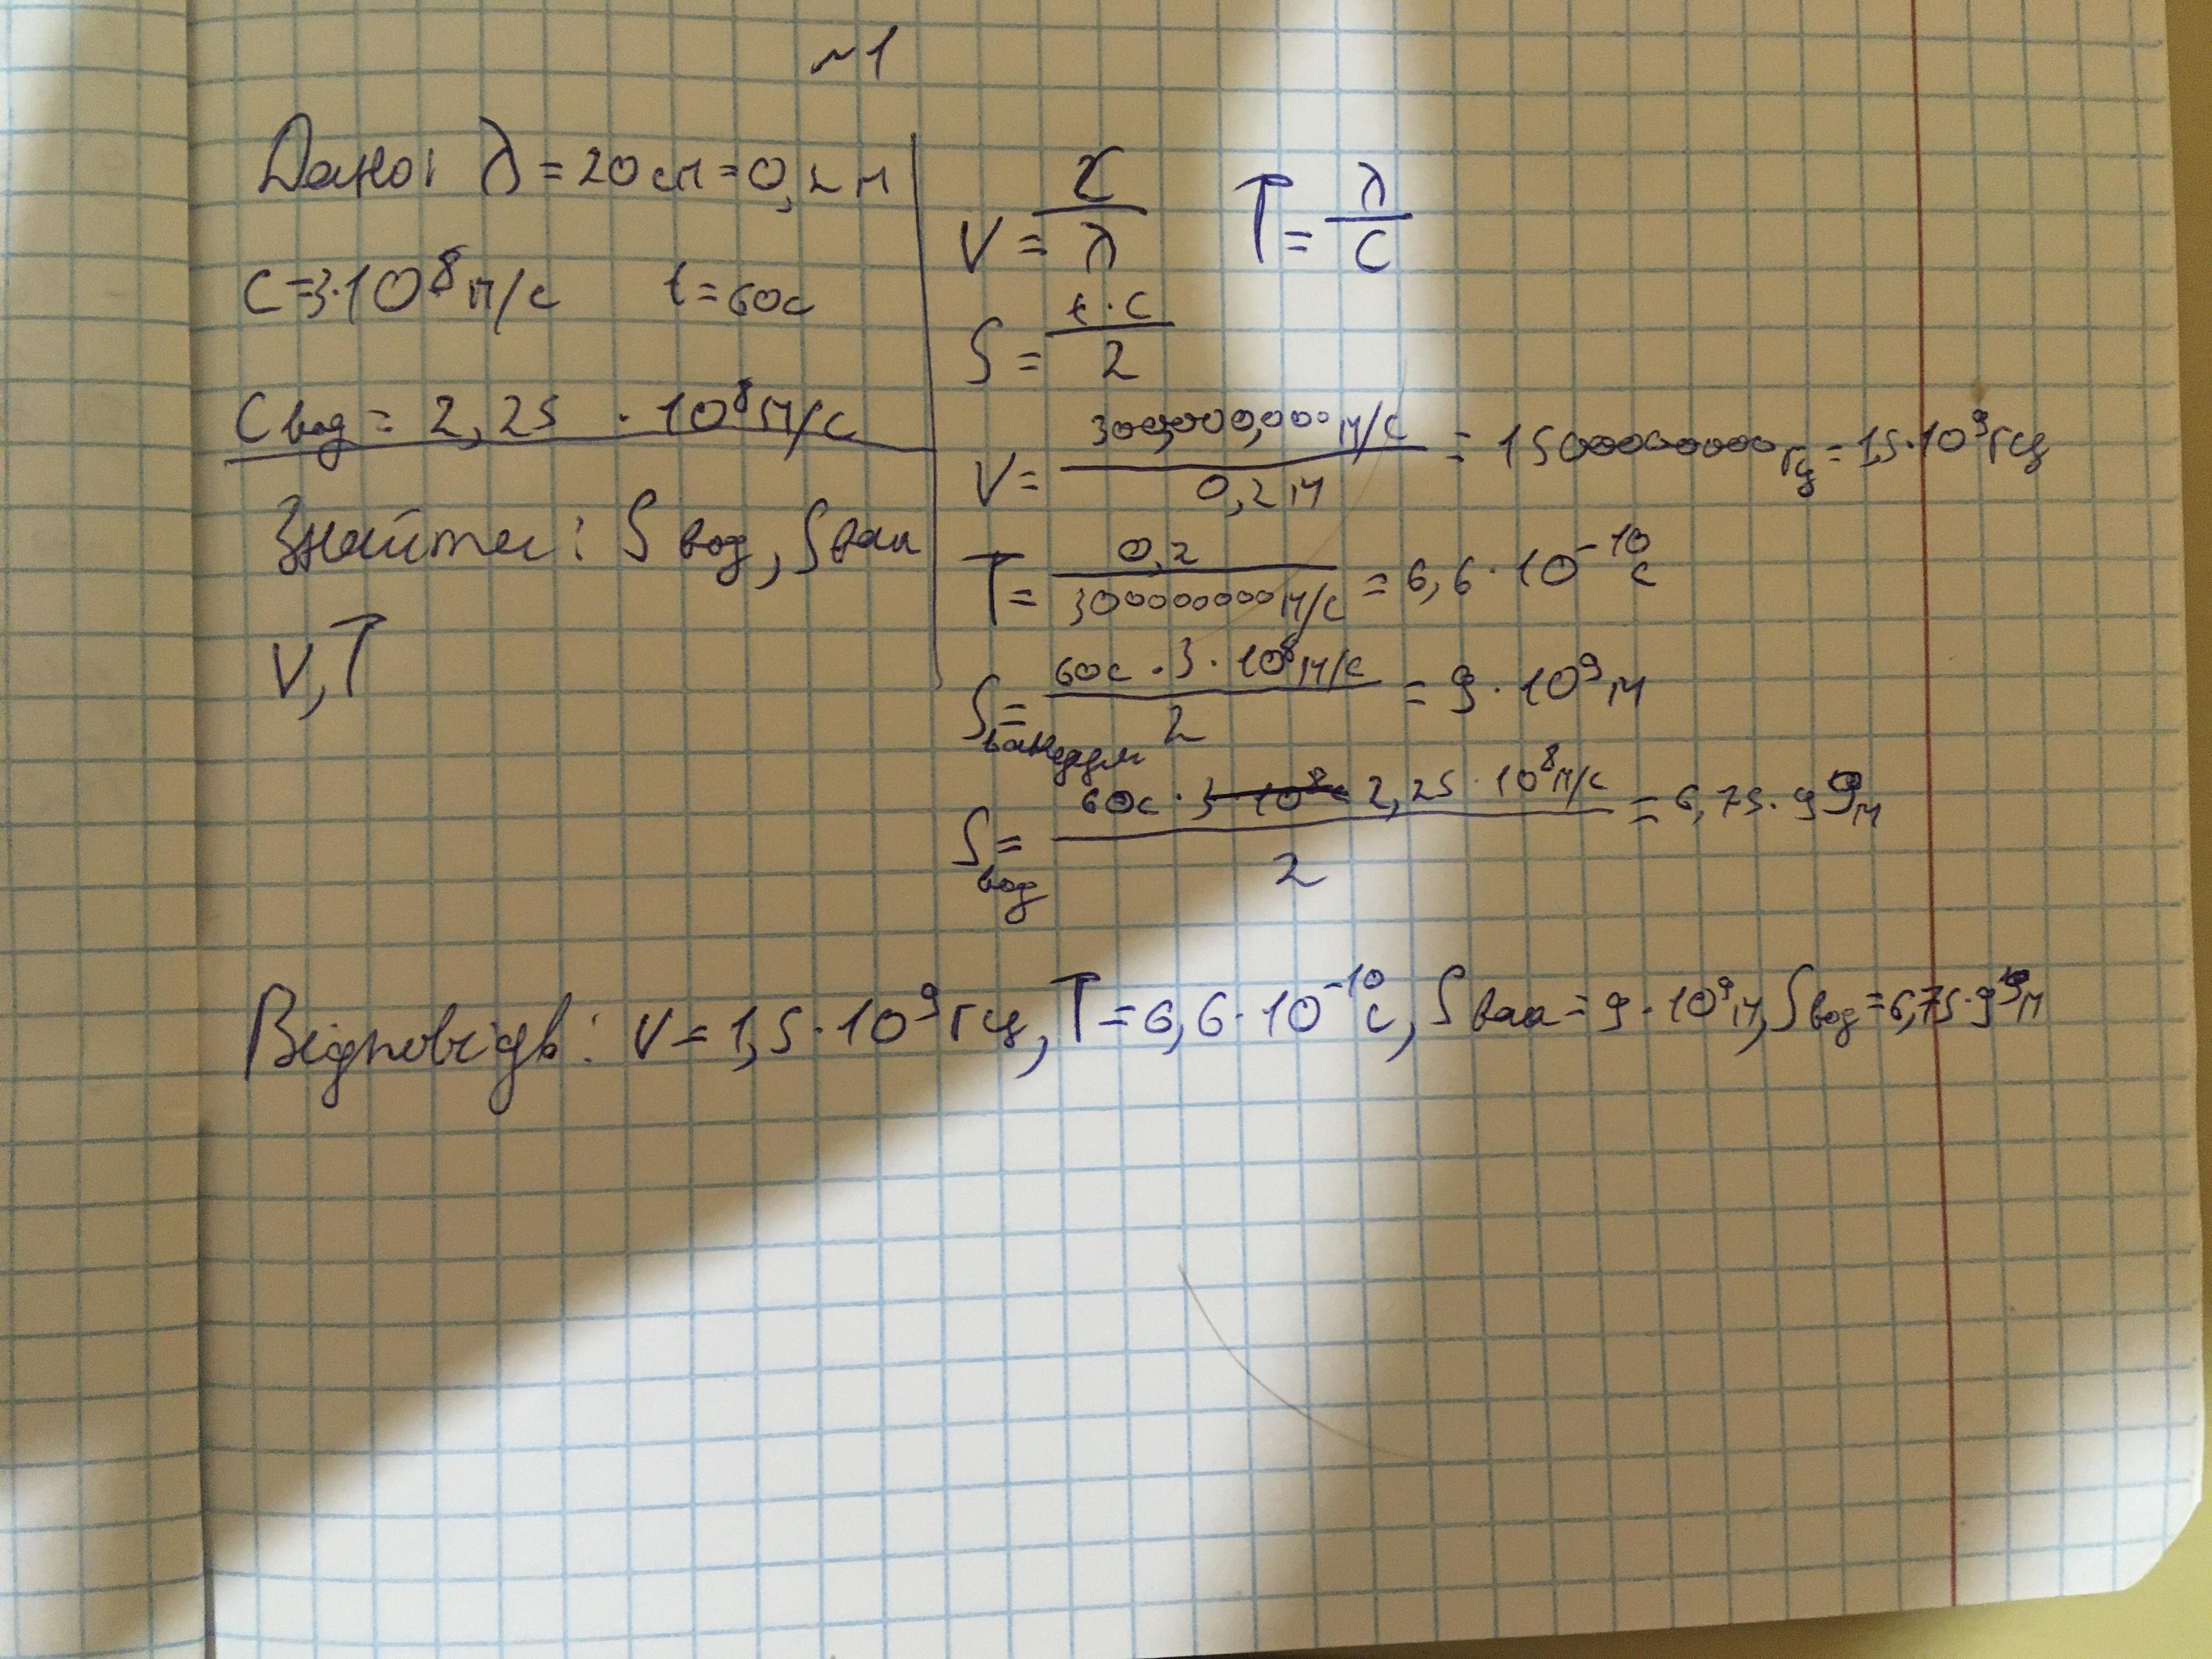 ~1
Дано: λ = 20 см = 0,2 м
C = 3·10⁸ м/с t = 60с
Cвод = 2,25 · 10⁸ м/с
Знайти: Sвод, Sвак
V, T
V = C/λ T = λ/C
S = t·C/2
V = 300,000,000 м/с / 0,2 м = 1500000000 Гц = 1,5·10⁹ Гц
T = 0,2 / 300000000 м/с = 6,6·10⁻¹⁰ с
S = 60с · 3 · 10⁸ м/с / 2 = 9 · 10⁹ м
Sвод = 60с · 2,25 · 10⁸ м/с / 2 = 6,75 · 9⁹ м
Відповідь: V = 1,5·10⁹ Гц, T = 6,6·10⁻¹⁰ с, Sвак = 9·10⁹ м, Sвод = 6,75·9⁹ м